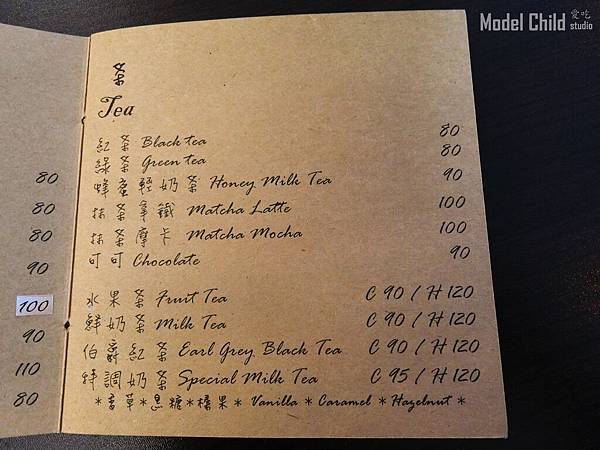 Model Child 愛吃 studio
茶
Tea
紅茶 Black tea 80
綠茶 Green tea 80
蜂蜜輕奶茶 Honey Milk Tea 90
抹茶拿鐵 Matcha Latte 100
抹茶摩卡 Matcha Mocha 100
可可 Chocolate 90
水果茶 Fruit Tea C 90 / H 120
鮮奶茶 Milk Tea C 90 / H 120
伯爵紅茶 Earl Grey Black Tea C 90 / H 120
特調奶茶 Special Milk Tea C 95 / H 120
*香草*黑糖*榛果* Vanilla * Caramel * Hazelnut *
80
80
80
90
100
90
110
80